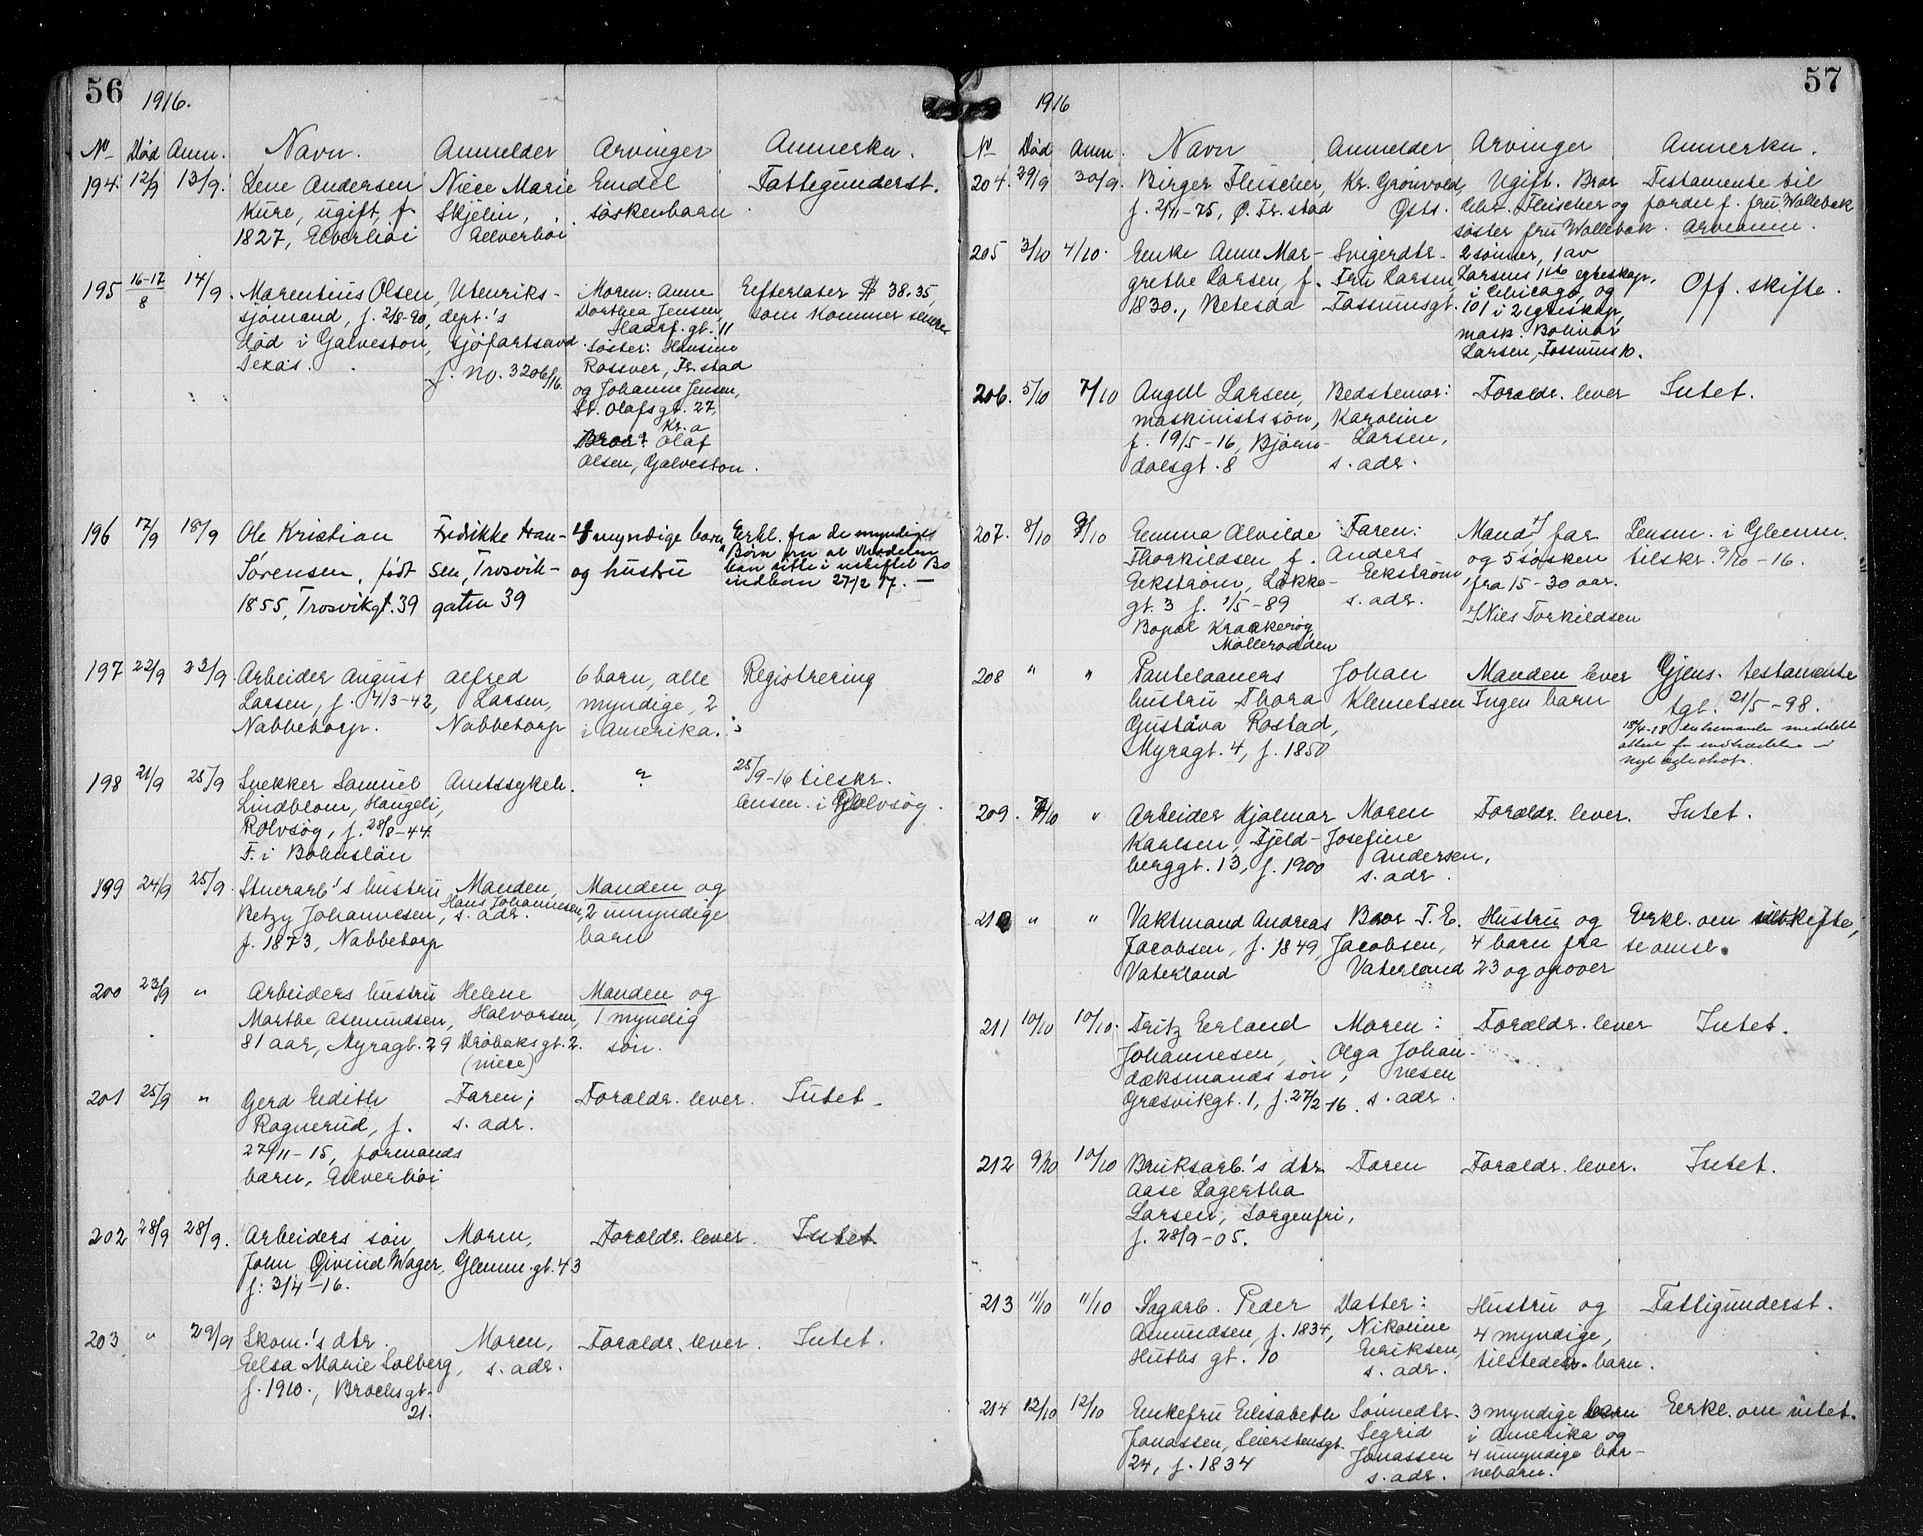 56
1916.
No Död Anm. Navn. Anmelder Arvinger Anmerkn.
194. 12/9 13/9. Lene Andersen Niece Marie Endel Fattigunderst.
Kure, ugift, f. Skjelin, söskenbarn
1827, Elverhöi Elverhöi
195 16-17/8 14/9. Marentius Olsen, Utenriks- Moren: Anne Efterlater $ 38.35,
sjömand, f. 2/8-90, dept.'s Dorthea Jensen, som kommer senere
död i Galveston, sjöfartsavd. Haarf. gt. 11
Texas. j. no. 3206/16. söster: Hansine
Rosever, Fr.stad
og Johanne Jensen,
St. Olafsgt. 27,
Kr.a
Bror: Olaf
Olsen, Galveston.
196 17/9 18/9 Ole Kristian Fredrikke Han- 4 myndige barn Erkl. fra de myndige
Sörensen, födt sen, Trosvik- og hustru Börn om at Moderen
1855, Trosvikgt. 39 gaten 39 kan sitte i uskiftet Bo
indkom 27/2 17. —
197 22/9 23/9 Arbeider August Alfred 6 barn, alle Registrering
Larsen, f. 4/3-42, Larsen, myndige, 2
Nabbetorp. Nabbetorp i Amerika.
198 21/9 25/9 Snekker Samuel Amtssykeh. ? 25/9-16 tilskr.
Lindblom, Haugeli, lensm. i Rolvsög.
Rolvsög, f. 28/8-44.
F. i Bohuslän
199 24/9 25/9. Stuerarb's hustru Manden, Manden og
Betzy Johannesen, Hans Johannesen, 2 umyndige
f. 1873, Nabbetorp s. adr. barn
200 23/9 " Arbeiders hustru Helene Manden og
Marthe Asmundsen, Halvorsen, 1 myndig
81 aar, Myragt. 29 Dröbaksgt. 2. sön.
(niece)
201 25/9 " Gerd Edith Faren; Forældr. lever. Intet.
Ragnerud, f. s. adr.
27/11-15, formands
barn, Elverhöi
202 28/9 28/9. Arbeiders sön Moren, Forældr. lever. Intet.
John Öivind Wager, Glemm. gt. 43
f: 3/4-16.
203 " 29/9 Skom.'s dtr. Moren, Forældr. lever. Intet.
Elsa Marie Solberg, s. adr.
f. 1910., Brochsgt.
21.
57
1916
No Död Anm. Navn Anmelder Arvinger Anmerkn.
204. 29/9 30/9. Birger Fleischer, Kr. Grönvold, Ugift. Bror Testamente til
f. 2/11-75, Ö. Fr.stad Osts. Chr. Fleischer og fordel f. fru Wollebæk
söster fru Wollebæk. Arveanm.
205 3/10 4/10. Enke Anne Mar- Svigerdtr. 2 sönner, 1 av
grethe Larsen, f. Fru Larsen, Larsens 1ste egteskap,
1830., Betesda Fossumsgt. 10 i Chicago, og Off. skifte.
1 i 2 egteskap,
mask. Bolivar
Larsen, Fossums 10.
206. 5/10 7/10 Angell Larsen, Bedstemor: Forældr. lever Intet.
maskinistssön, Karoline
f. 19/5-16, Björn- Larsen,
dalsgt. 8 s. adr.
207. 8/10 9/10 Emma Alvilde Faren: Mand x/ far Lensm. i Glemm.
Thorkildsen f. Anders og 5 søsken tilskr. 9/10-16.
Eekström, Lökke- Eekström, fra 15-30 aar.
gt. 3 f. 1/5-89 s. adr.
Bopæl Kraakerög, x/ Niels Torkildsen
Mölleroddden
208 " " Pantelaaners Johan Manden lever Gjens. testamente
hustru Thora Klemetsen Ingen barn tgl. 21/5-98.
Gustava Rostad, 18/4-18 enkemande meddelt
Myragt. 4, f. 1850 attest for indtrædelse i
nyt egteskap.
209. 7/10 " Arbeider Hjalmar Moren Forældr. lever. Intet.
Karlsen, Fjeld- Josefine
berggt. 13, f. 1900 Andersen,
s. adr.
210 " " Vaktmand Andreas Bror T.E. Hustru og Erkl. om uskifte,
Jacobsen, f. 1849, Jacobsen, 4 barn fra se omsl.
Vaterland Vaterland 23 og opover
211 10/10 10/10. Fritz Erland Moren: Forældr. lever Intet.
Johannesen, Olga Johan-
dæksmands sön, nesen
Græsvikgt. 1, f. 27/2-16. s. adr.
212 9/10 10/10 Bruksarb.'s dtr Faren Forældr. lever. Intet.
Aase Lagertha
Larsen, Sorgenfri,
f. 28/9-05.
213 11/10 11/10 Sagarb. Peder Datter: Hustru og Fattigunderst.
Asmundsen, f. 1834, Nikoline 4 myndige,
Huths gt. 10 Eriksen, tilstedev. barn.
s. adr.
214 12/10 12/10 Enkefru Elisabeth Sönnedtr. 3 myndige barn Erkl. om intet.
Jonassen, Seierstensgt. Sigrid i Amerika og
24, f. 1834 Jonassen 4 umyndige bar-
s. adr. nebarn.